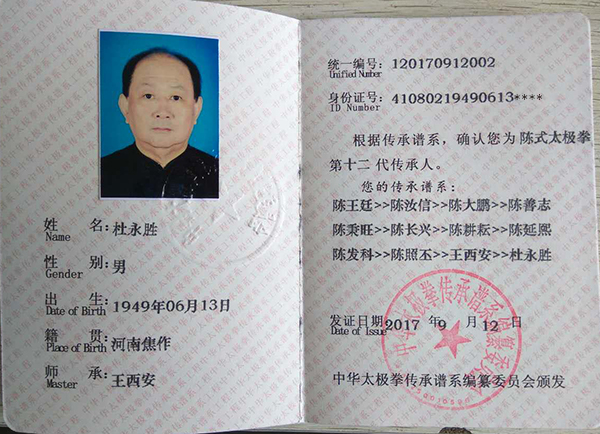 姓 名：杜永胜
Name
性 别：男
Gender
出 生：1949年06月13日
Date of Birth
籍 贯：河南焦作
Place of Birth
师 承：王西安
Master
统一编号：120170912002
Unified Number
身份证号：41080219490613****
ID Number
根据传承谱系，确认您为陈式太极拳
第十二代传承人。
您的传承谱系：
陈王廷>>陈汝信>>陈大鹏>>陈善志
陈秉旺>>陈长兴>>陈耕耘>>陈延熙
陈发科>>陈照丕>>王西安>>杜永胜
发证日期：2017 年 9 月 12 日
Date of Issue
中华太极拳传承谱系编纂委员会
中华太极拳传承谱系编纂委员会颁发